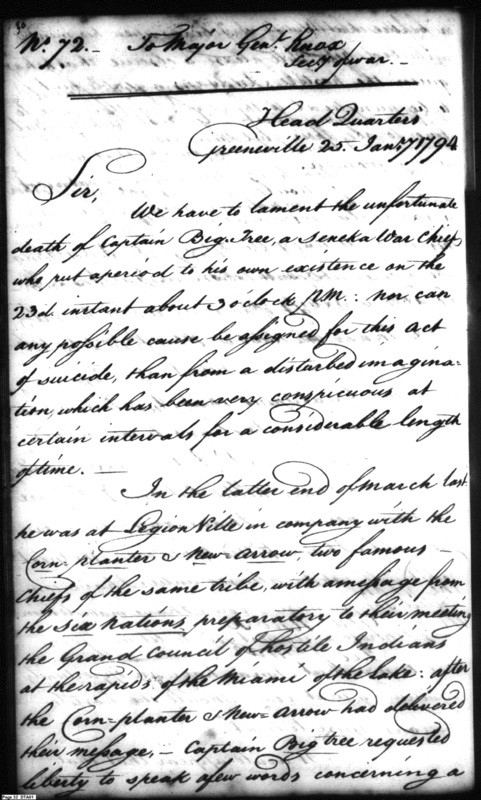 No. 72. — To Major Genl. Knox
Secy of war. —
Head Quarters
Greeneville 25. Jany. 1794
Sir,
We have to lament the unfortunate
death of Captain Big-Tree, a Seneka War Chief,
who put a period to his own existence on the
23d. instant about 3 oClock P.M.: nor can
any possible cause be assigned for this act
of suicide, than from a disturbed imagina=
tion, which has been very conspicuous at
certain intervals for a considerable length
of time. —
In the latter end of March last
he was at Legion Ville in company with the
Corn=planter & New=Arrow, two famous
Chiefs of the same tribe, with a message from
the six Nations, preparatory to their meeting
the Grand Council of hostile Indians
at the rapids of the Miami of the lake: after
the Corn=planter & New=Arrow had delivered
their message, — Captain Big tree requested
liberty to speak a few words concerning a